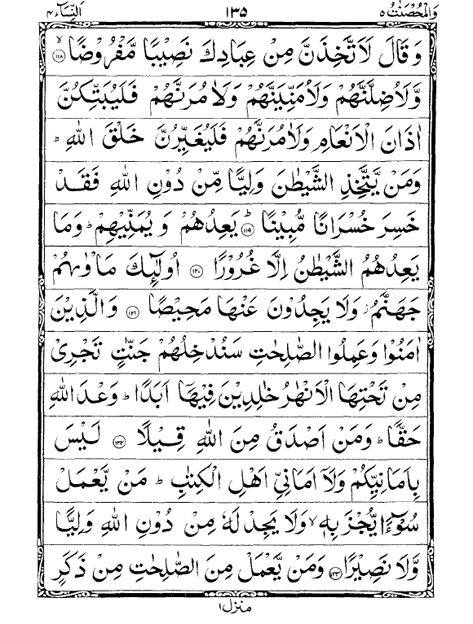 وَالْمُحْصَنٰتُ ٥ ١٣٥ النِّسَآء ٤
وَ قَالَ لَاَتَّخِذَنَّ مِنْ عِبَادِكَ نَصِيْبًا مَّفْرُوْضًا ﴿١١٨﴾ۙ
وَّلَاُضِلَّنَّهُمْ وَلَاُمَنِّيَنَّهُمْ وَلَاٰمُرَنَّهُمْ فَلَيُبَتِّكُنَّ
اٰذَانَ الْاَنْعَامِ وَلَاٰمُرَنَّهُمْ فَلَيُغَيِّرُنَّ خَلْقَ اللهِ ؕ
وَمَنْ يَّتَّخِذِ الشَّيْطٰنَ وَلِيًّا مِّنْ دُوْنِ اللهِ فَقَدْ
خَسِرَ خُسْرَانًا مُّبِيْنًا ﴿١١٩﴾ؕ يَعِدُهُمْ وَ يُمَنِّيْهِمْ ؕ وَمَا
يَعِدُهُمُ الشَّيْطٰنُ اِلَّا غُرُوْرًا ﴿١٢٠﴾ اُولٰٓئِكَ مَاْوٰىهُمْ
جَهَنَّمُ ز وَلَا يَجِدُوْنَ عَنْهَا مَحِيْصًا ﴿١٢١﴾ وَالَّذِيْنَ
اٰمَنُوْا وَعَمِلُوا الصّٰلِحٰتِ سَنُدْخِلُهُمْ جَنّٰتٍ تَجْرِيْ
مِنْ تَحْتِهَا الْاَنْهٰرُ خٰلِدِيْنَ فِيْهَآ اَبَدًا ؕ وَعْدَ اللهِ
حَقًّا ؕ وَمَنْ اَصْدَقُ مِنَ اللهِ قِيْلًا ﴿١٢٢﴾ لَيْسَ
بِاَمَانِيِّكُمْ وَلَآ اَمَانِيِّ اَهْلِ الْكِتٰبِ ؕ مَنْ يَّعْمَلْ
سُوْٓءًا يُّجْزَ بِهٖ ۙ وَلَا يَجِدْ لَهٗ مِنْ دُوْنِ اللهِ وَلِيًّا
وَّلَا نَصِيْرًا ﴿١٢٣﴾ وَمَنْ يَّعْمَلْ مِنَ الصّٰلِحٰتِ مِنْ ذَكَرٍ
منزل ١